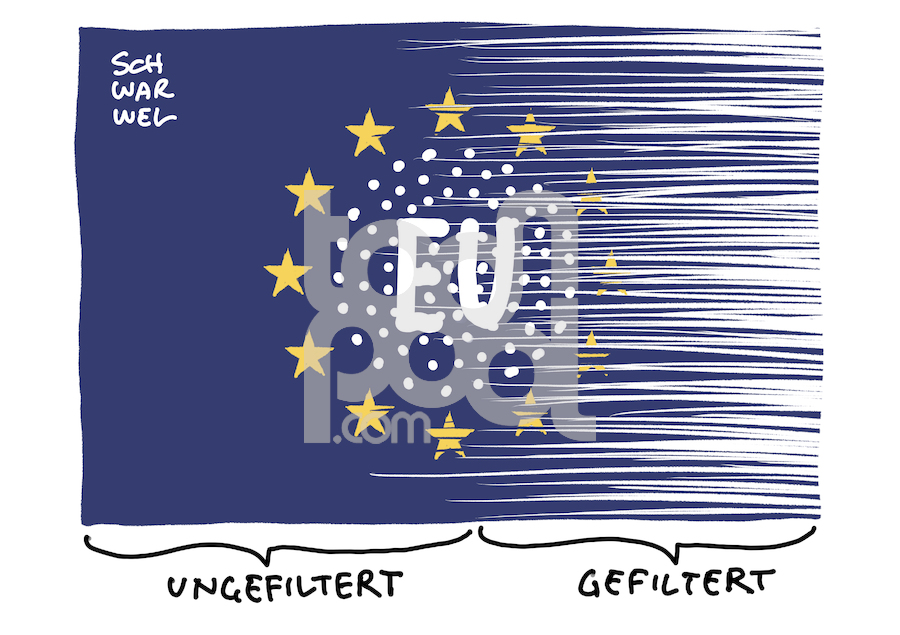 SCH
WAR
WEL
EU
toon
pool
.com
UNGEFILTERT
GEFILTERT